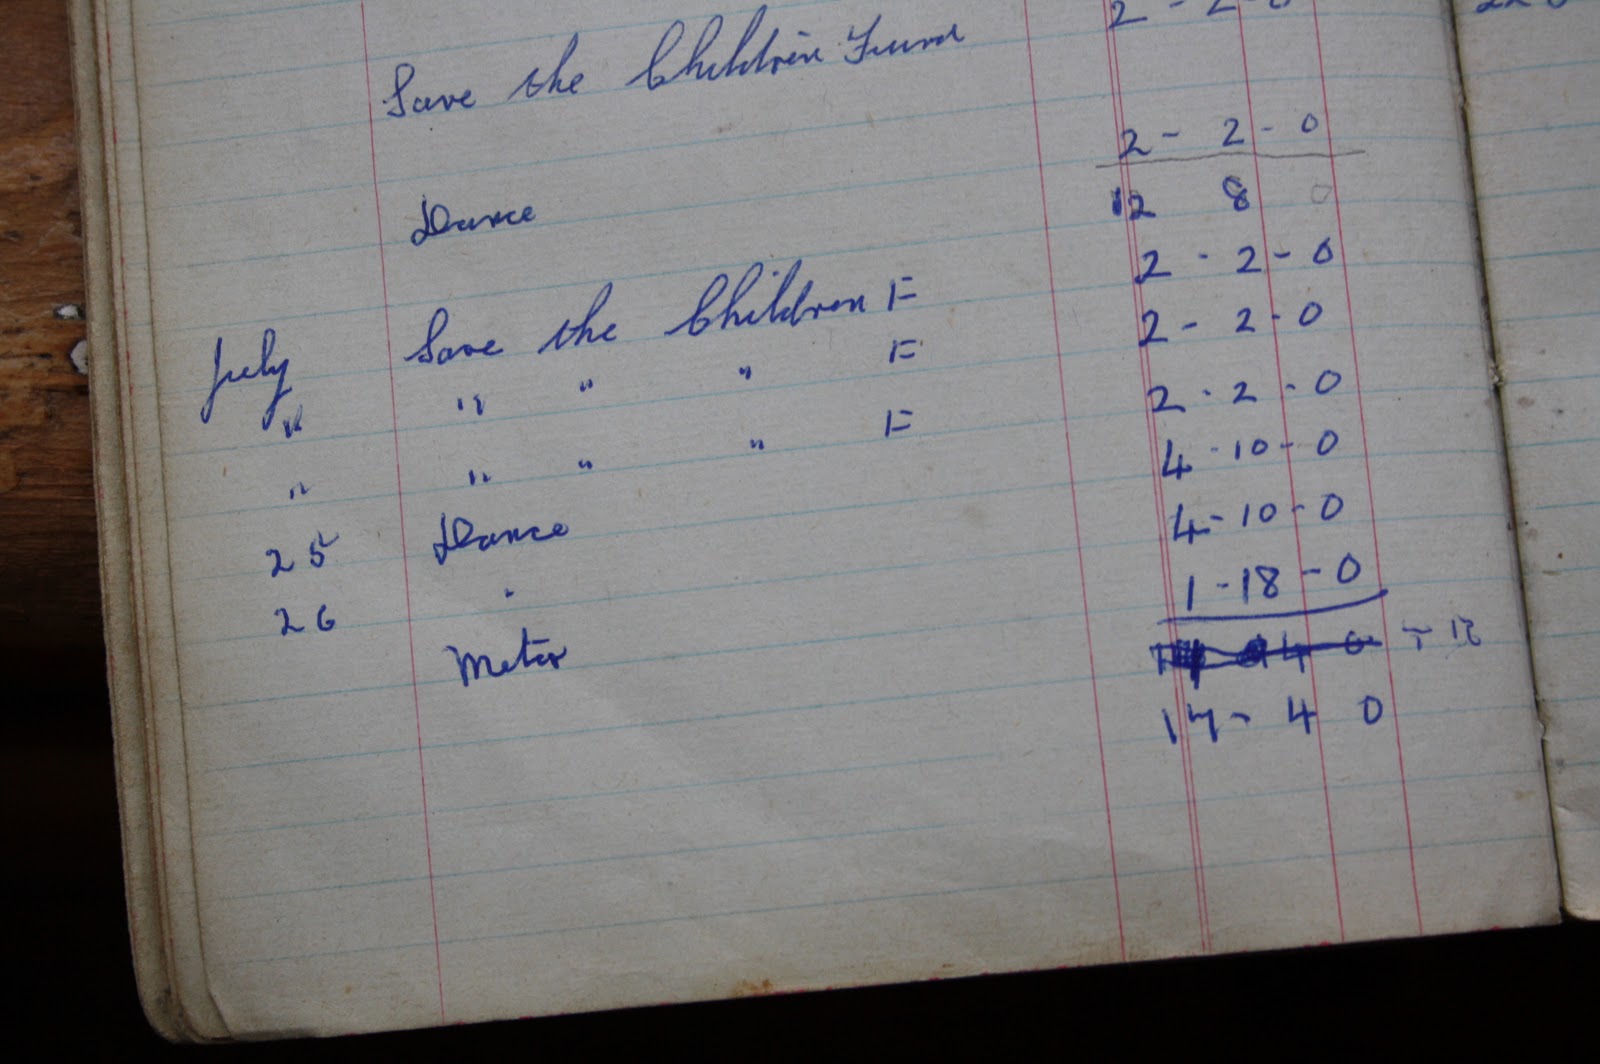 Save the Children Fund 2 - 2 - 0
Dance 2 - 2 - 0
12 8 0
July Save the Children F 2 - 2 - 0
" " " " F 2 - 2 - 0
" " " " F 2 - 2 - 0
25 Dance 4 - 10 - 0
26 " 4 - 10 - 0
Meter 1 - 18 - 0
17 - 4 0